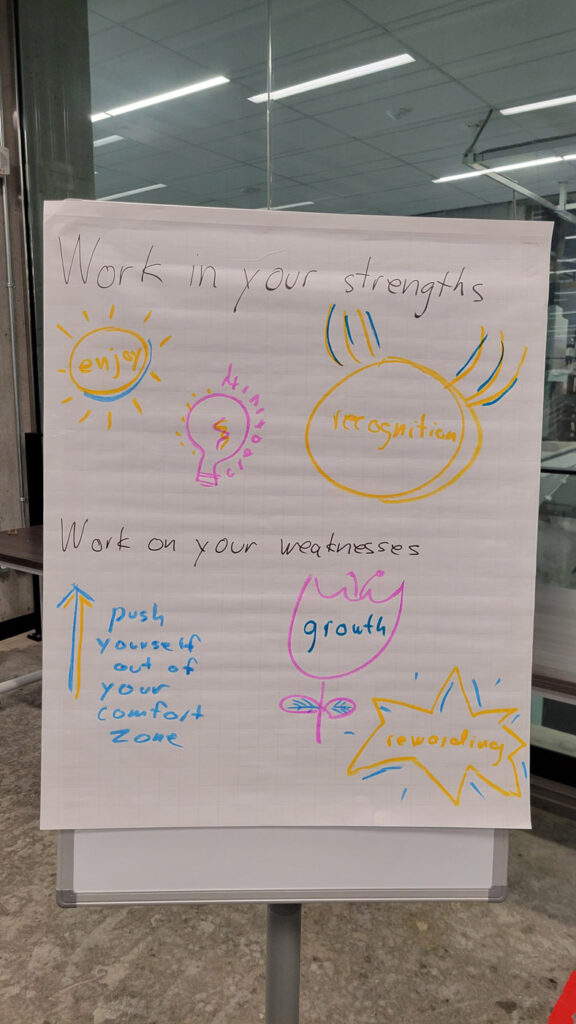 Work in your strengths
enjoy
recognition
Work on your weaknesses
push
yourself
out of
your
comfort
zone
growth
rewarding